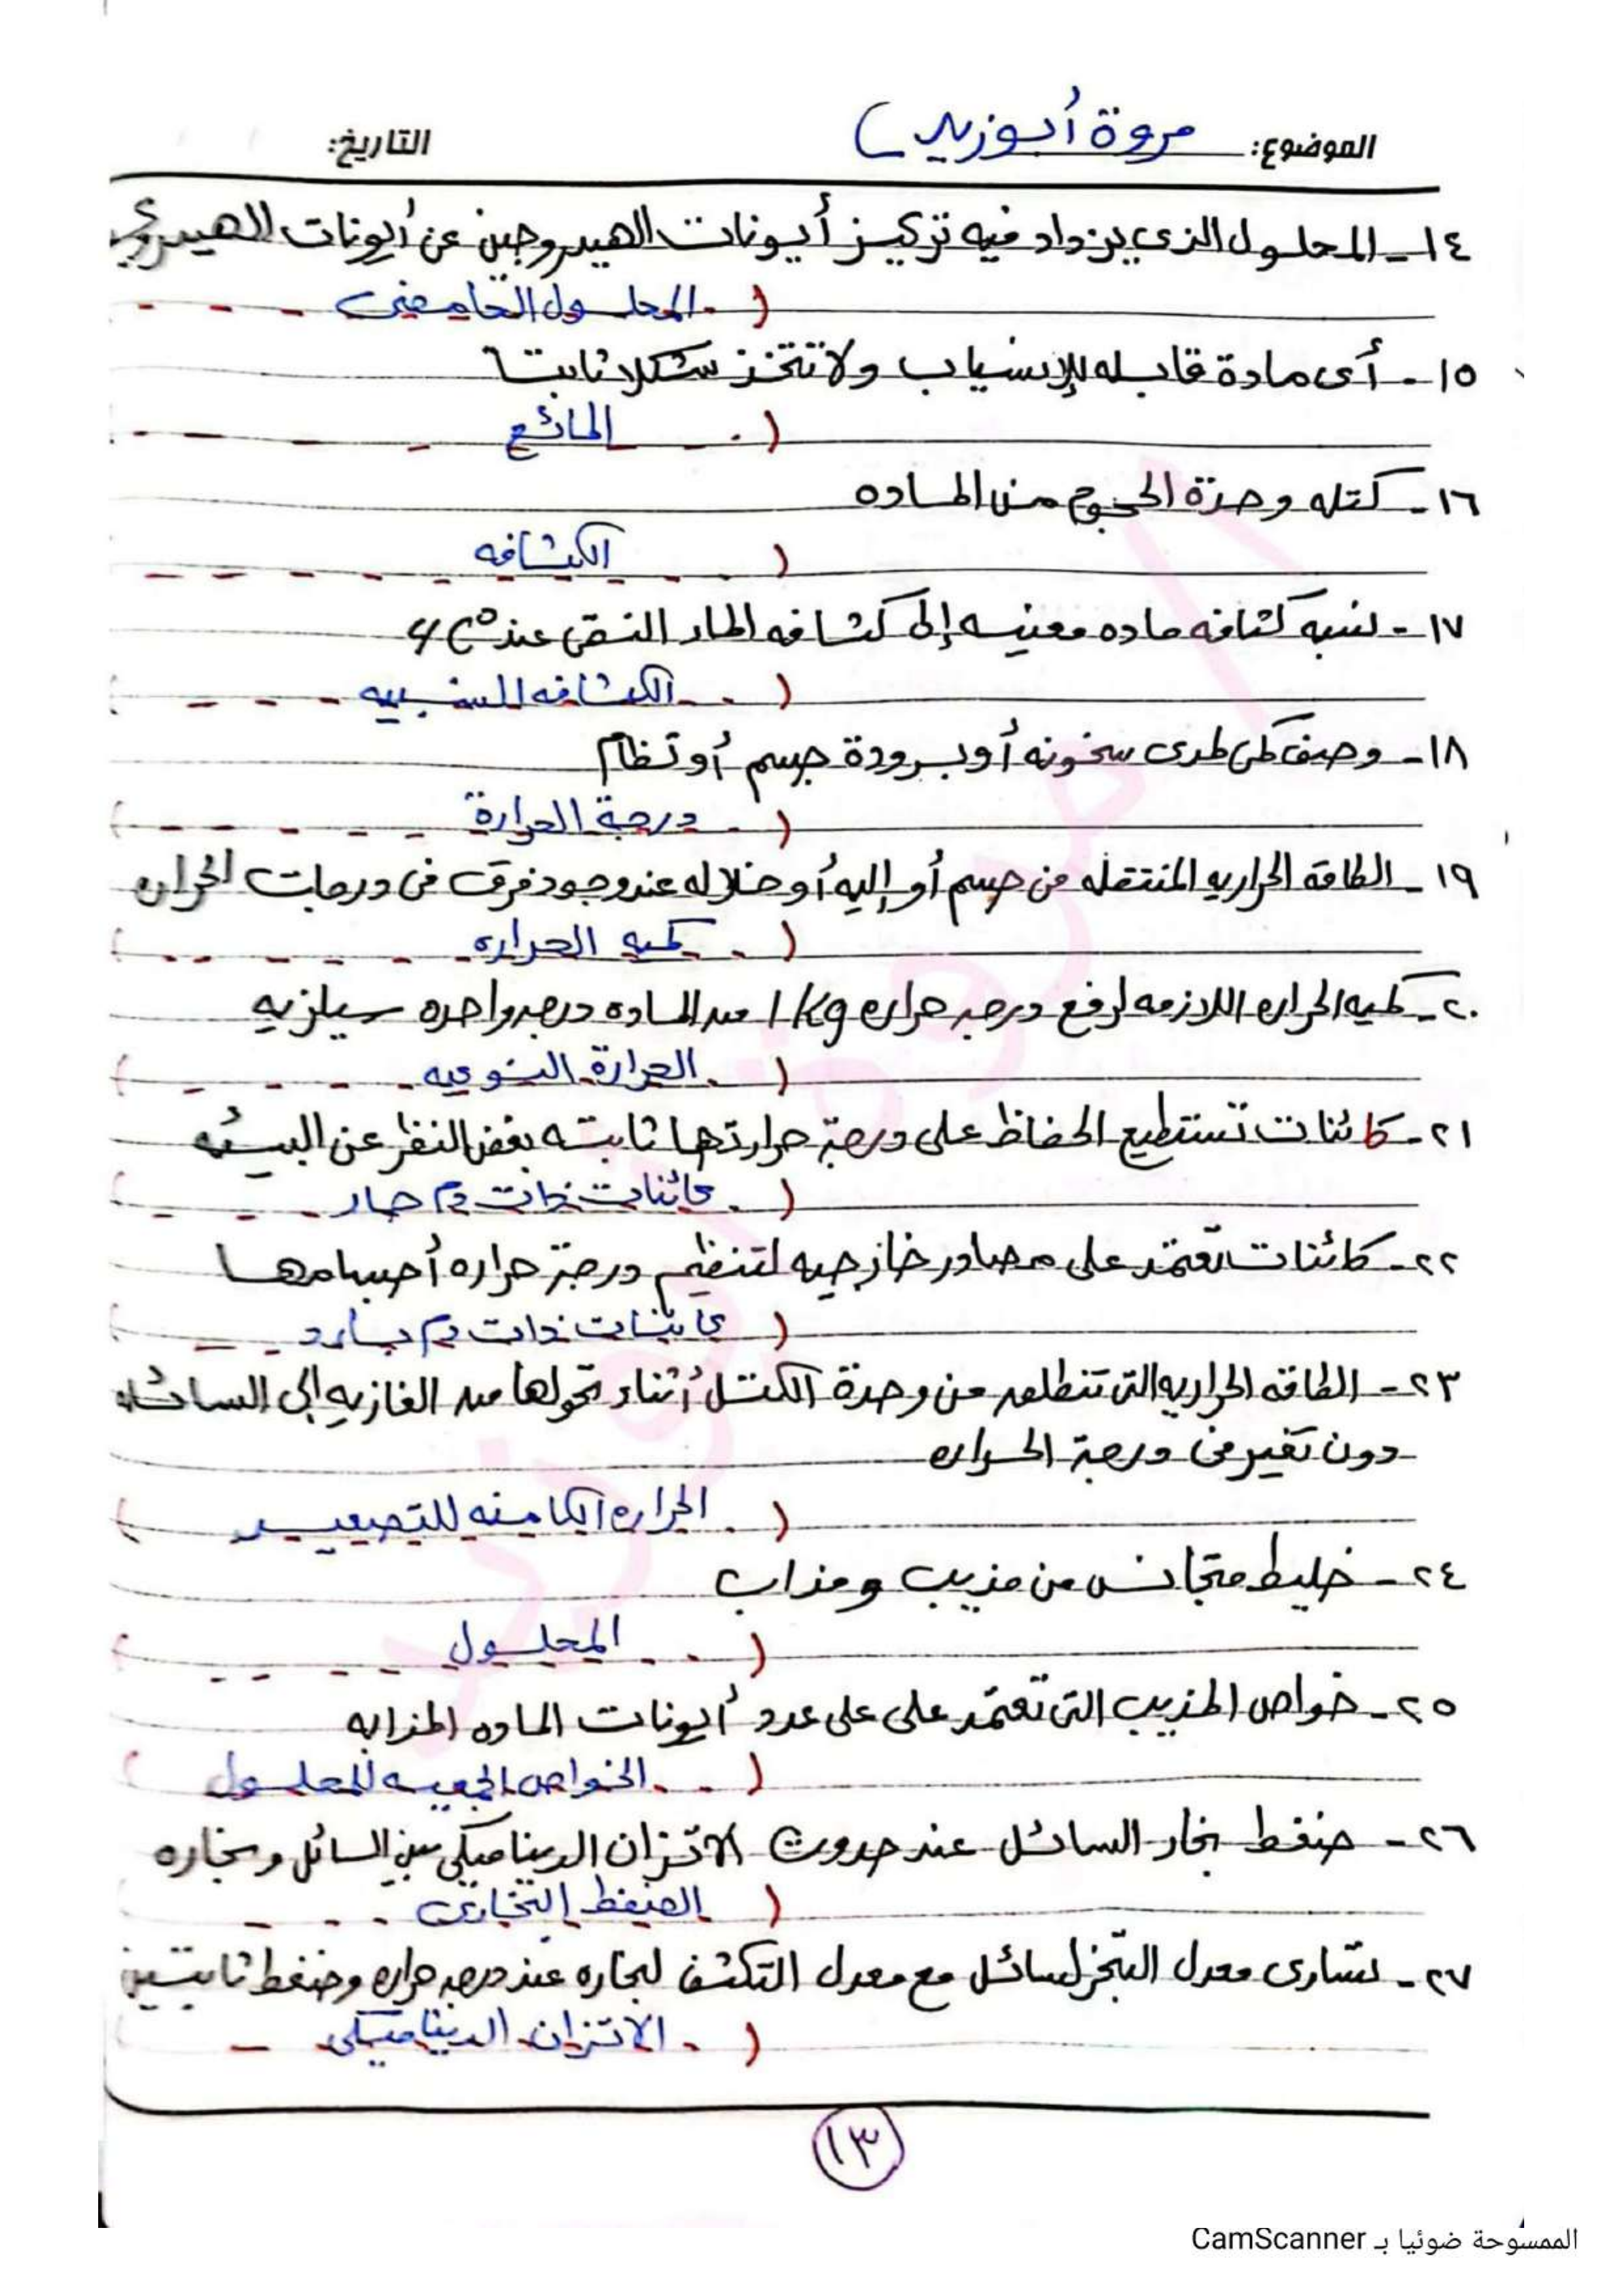 الموضوع: مروة أبوزيد
التاريخ:
١٤- المحلول الذي يزداد فيه تركيز أيونات الهيدروجين عن أيونات
( المحلول الحامضى
١٥- أى مادة قابله للإنسياب ولا تتخذ شكلا ثابتا
( المائع
١٦- كتله وحدة الحجوم من الماده
( الكثافه
١٧- نسبه كثافه ماده معينيه إلى كثافه الماء النقى عند 4C°
( الكثافه النسبيه )
١٨- وصف كمى لمدى سخونه أو برودة جسم أو نظام
( درجة الحرارة )
١٩- الطاقة الحراريه المنتقله من جسم أو إليه أو خلاله عند وجود فرق فى درجات الحراره
( كميه الحراره )
٢٠- كميه الحراره اللازمه لرفع درجه حراره 1Kg من الماده درجه واحده سيلزيه
( الحرارة النوعيه )
٢١- كائنات تستطيع الحفاظ على درجة حرارتها ثابته بغض النظر عن البيئه
( كائنات ذات دم حار )
٢٢- كائنات تعتمد على مصادر خارجيه لتنظيم درجة حراره أجسامها
( كائنات ذات دم بارد )
٢٣- الطاقه الحراريه التى تنطلق من وحدة الكتل أثناء تحولها من الغازيه إلى السائله
دون تغير فى درجة الحراره
( الحراره الكامنه للتصعيد )
٢٤- خليط متجانس من مذيب ومذاب
( المحلول )
٢٥- خواص المذيب التى تعتمد على على عدد أيونات الماده المذابه
( الخواص الجمعيه للمحلول )
٢٦- ضغط بخار السائل عند حدوث الاتزان الديناميكى بين السائل وبخاره
( الضغط البخارى
٢٧- تساوى معدل التبخر لسائل مع معدل التكثف لبخاره عند درجه حراره وضغط ثابتين
( الاتزان الديناميكى
١٣
الممسوحة ضوئيا بـ CamScanner